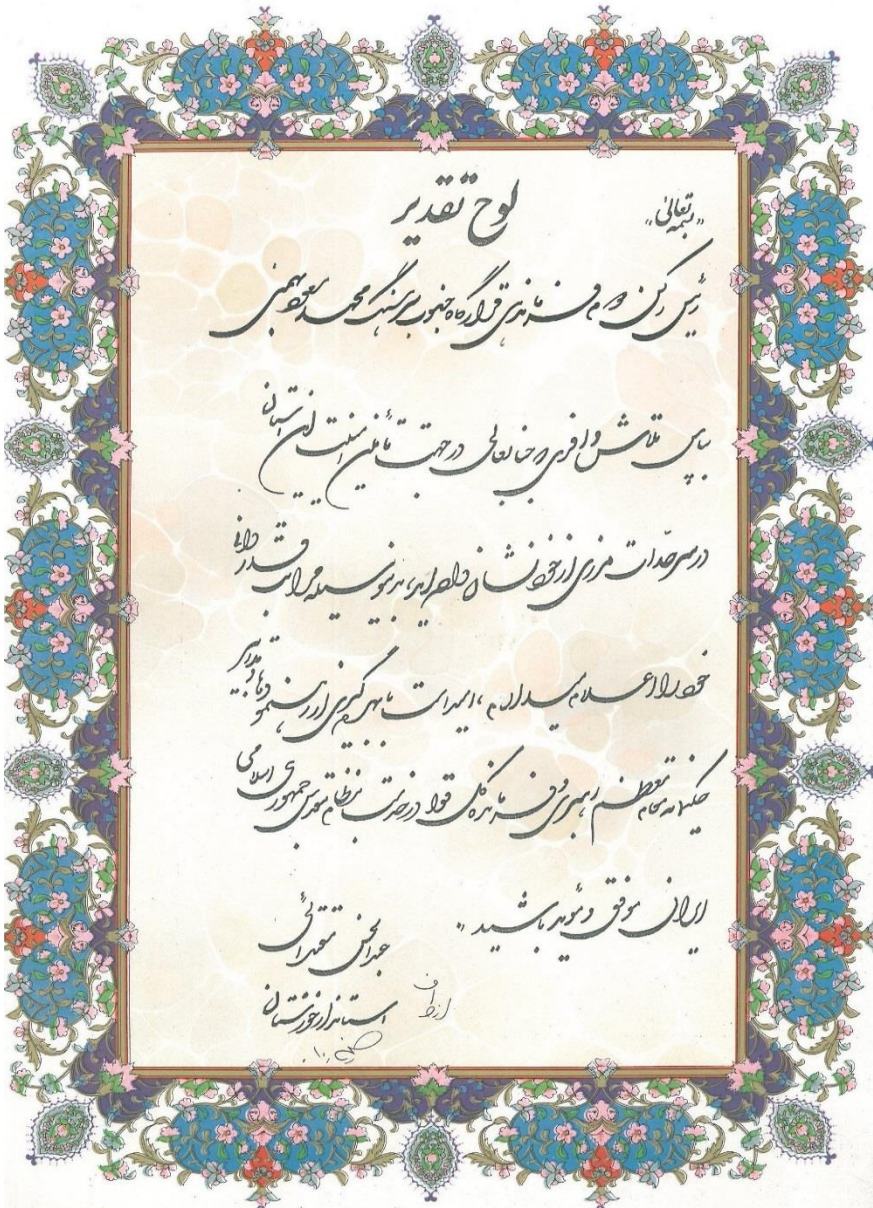 «بسمه تعالی»
لوح تقدیر
رئیس رکن دوم فرماندهی قرارگاه جنوب سرهنگ محمد سعید بهمنی
بپاس تلاش وافری که جنابعالی در جهت تأمین امنیت این استان
در سرحدات مرزی از خود نشان داده‌اید، بدینوسیله مراتب قدردانی
خود را اعلام میدارم، امید است با بهره‌گیری از رهنمودها و تدابیر
حکیمانه مقام معظم رهبری و فرمانده کل قوا در خدمت به نظام مقدس جمهوری اسلامی
ایران موفق و مؤید باشید»
عبدالحسن مقتدائی
استاندار خوزستان
از طرف